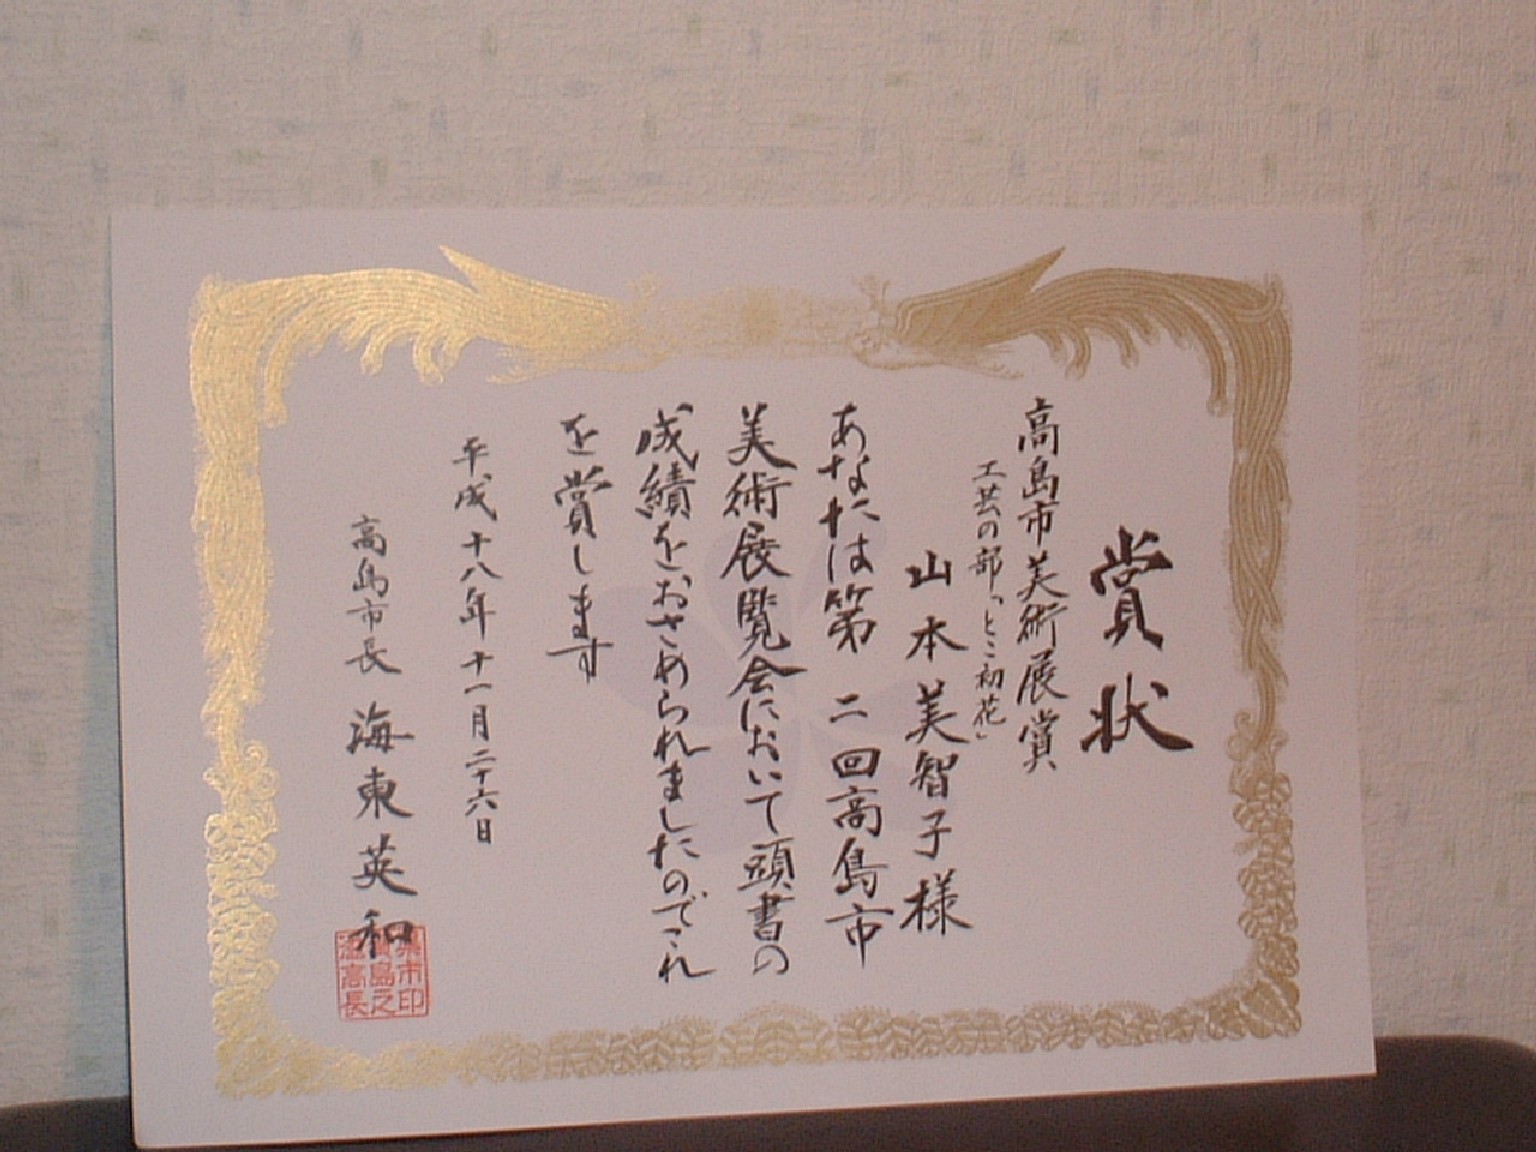 賞状
高島市美術展賞
工芸の部「とこ初花」
山本美智子様
あなたは第二回高島市
美術展覧会において頭書の
成績をおさめられましたのでこれ
を賞します
平成十八年十一月二十六日
高島市長 海東英和
滋賀県
高島市
長之印